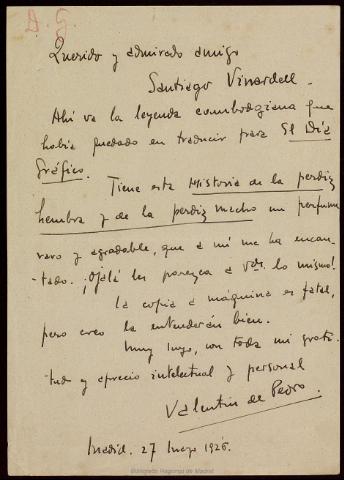 D. G.
Querido y admirado amigo
Santiago Vinardell.
Ahí va la leyenda combodgiana que
había quedado en traducir para El Día
Gráfico. Tiene esta Historia de la perdiz
hembra y de la perdiz macho un perfume
raro y agradable, que a mí me ha encan-
-tado. ¡Ojalá les parezca a Vds. lo mismo!
La copia a máquina es fatal,
pero creo la entenderán bien.
Muy suyo, con toda mi grati-
tud y aprecio intelectual y personal
Valentín de Pedro
Madrid. 27 Mayo 1926.
Biblioteca Regional de Madrid